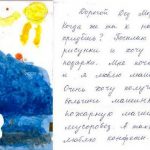 Дорогой Дед Мор
когда же ты к н
придёшь? Посылаю
рисунки и хочу
подарки. Мне
и я люблю маш
Очень хочу получ
большие машин
пожарную маши
мусоровоз. А так
люблю конфет